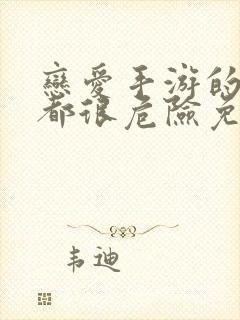 戀愛手游的
都很危險免
韦迪